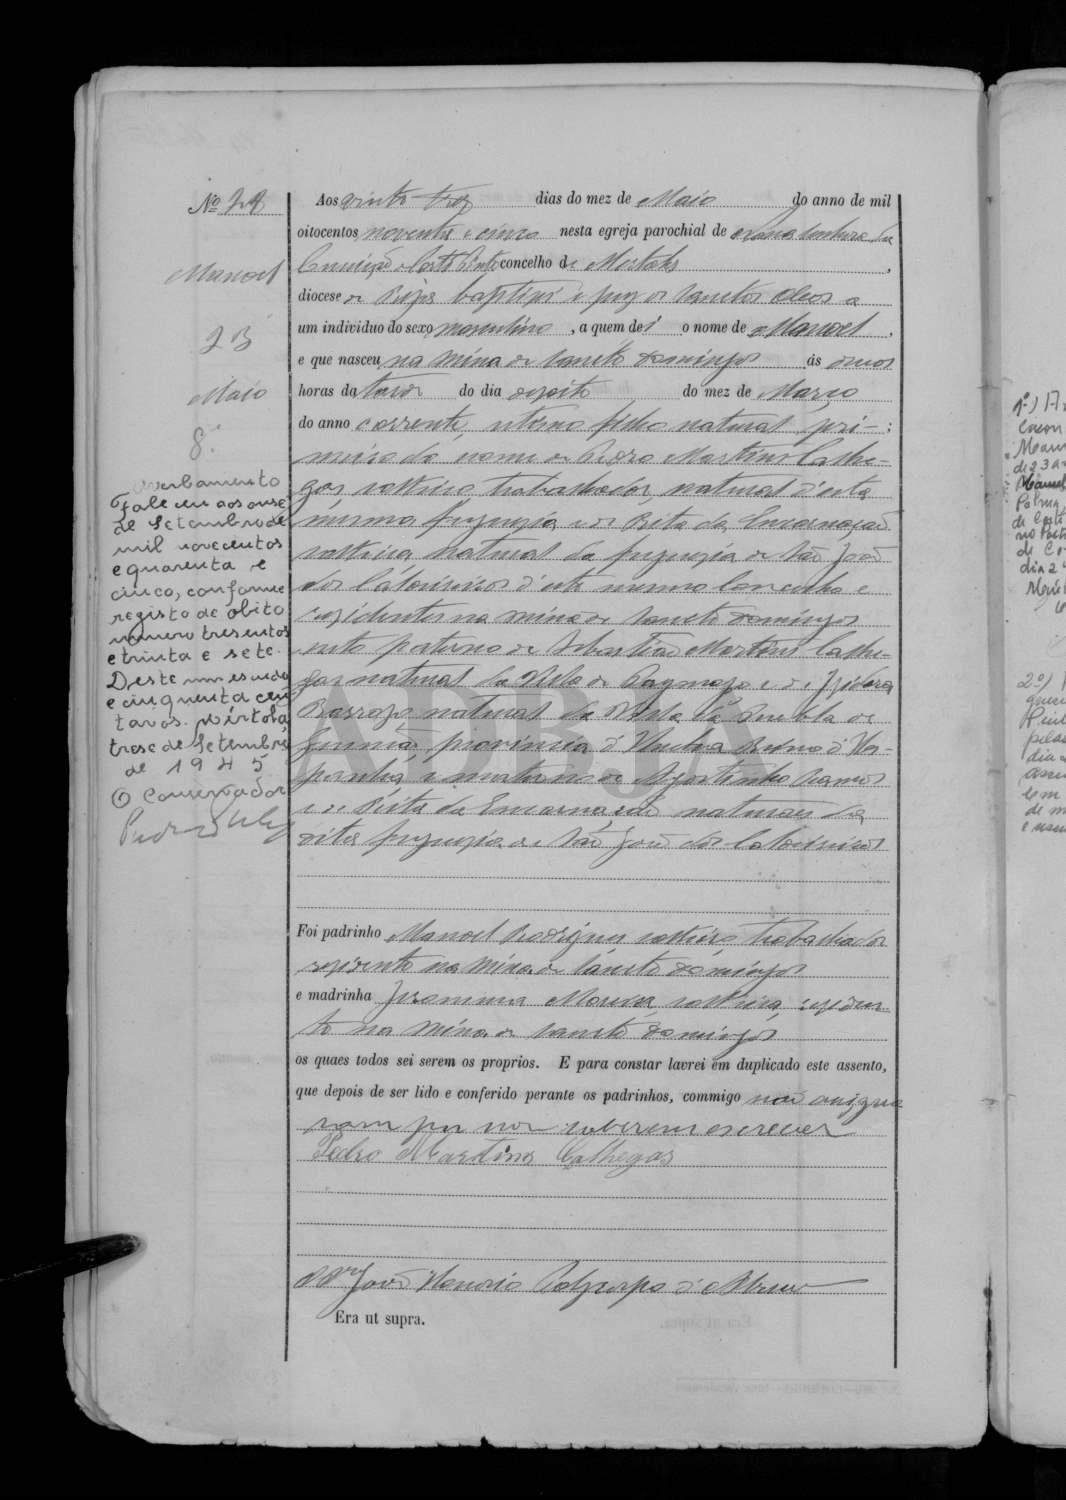 Nº
Manoel
23
Maio
8.º
averbamento
Faleceu aos onze
de Setembro de
mil novecentos
e quarenta e
cinco, conforme
registo de óbito
numero tresentos
e trinta e sete.
Deste um escudo
e cinquenta cen
tavos. Mértola,
treze de Setembro
de 1945
O Conservador
Aos vinte tres dias do mez de Maio do anno de mil
oitocentos noventa e cinco nesta egreja parochial de
concelho de Mertola,
diocese de Beja baptizei e puz os sanctos oleos a
um individuo do sexo masculino, a quem dei o nome de Manoel,
e que nasceu na Mina de Sancto Domingos ás onze
horas da tarde do dia dezoito do mez de Março
do anno corrente, filho natural, pri-
meiro do nome de Pedro Martins Calhe-
gas, solteiro, trabalhador, natural d'esta
mesma freguezia e de Rita da Encarnação
solteira, natural da freguezia de São João
dos Caldeireiros d'este mesmo Concelho e
residentes na mina de Sancto Domingos
neto paterno de Sebastião Martins Calhe-
gas natural da Villa de Paymogo e de Izidora
natural da Villa da Puebla de
Gusmão, provincia d'Huelva Reino d'Hes-
panha e materno de Agostinho Ramos
e de Rita da Encarnação naturaes da
dita freguezia de São João dos Caldeireiros
Foi padrinho Manoel Rodrigues solteiro, trabalhador
residente na Mina de Sancto Domingos
e madrinha Jeronima Moreira, solteira, residen-
te na Mina de Sancto Domingos
os quaes todos sei serem os proprios. E para constar lavrei em duplicado este assento,
que depois de ser lido e conferido perante os padrinhos, commigo não assigna
ram por não saberem escrever
Pedro Martins Calhegas
João Honorio d'Abreu
Era ut supra.
ADBJA